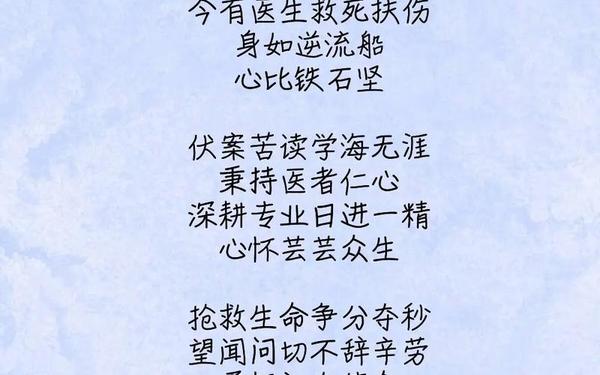 今有医生救死扶伤
身如逆流船
心比铁石坚
伏案苦读学海无涯
秉持医者仁心
深耕专业日进一精
心怀芸芸众生
抢救生命争分夺秒
望闻问切不辞辛劳